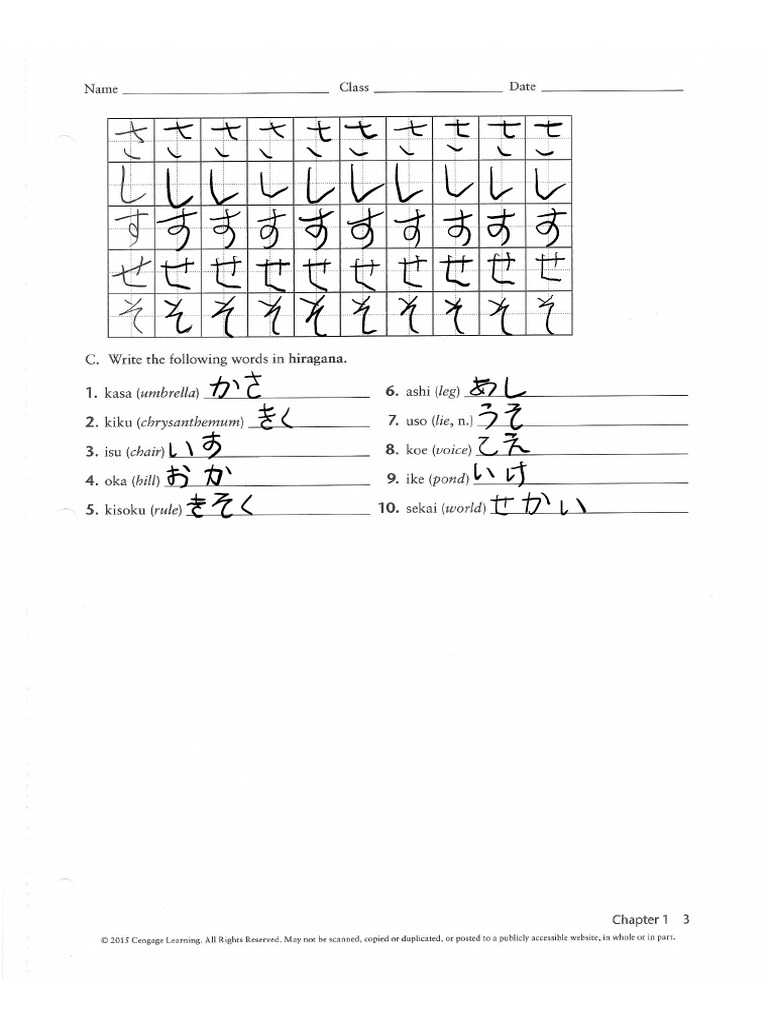 Name Class Date
さ さ さ さ さ さ さ さ さ さ
し し し し し し し し し し
す す す す す す す す す す
せ せ せ せ せ せ せ せ せ せ
そ そ そ そ そ そ そ そ そ そ
C. Write the following words in hiragana.
1. kasa (umbrella) かさ
2. kiku (chrysanthemum) きく
3. isu (chair) いす
4. oka (hill) おか
5. kisoku (rule) きそく
6. ashi (leg) あし
7. uso (lie, n.) うそ
8. koe (voice) こえ
9. ike (pond) いけ
10. sekai (world) せかい
Chapter 1 3
© 2015 Cengage Learning. All Rights Reserved. May not be scanned, copied or duplicated, or posted to a publicly accessible website, in whole or in part.